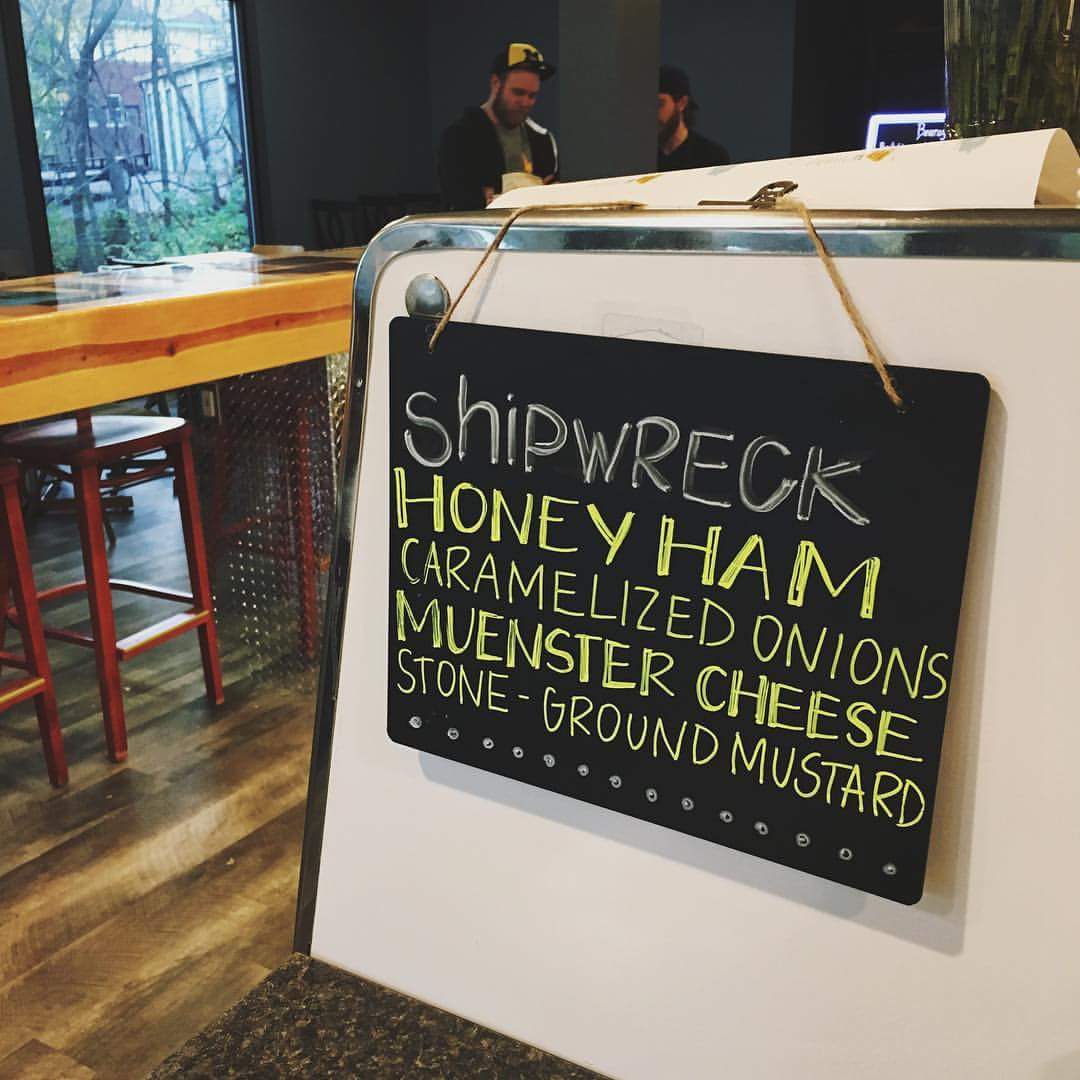 ShipWRECK
HONEY HAM
CARAMELIZED ONIONS
MUENSTER CHEESE
STONE-GROUND MUSTARD